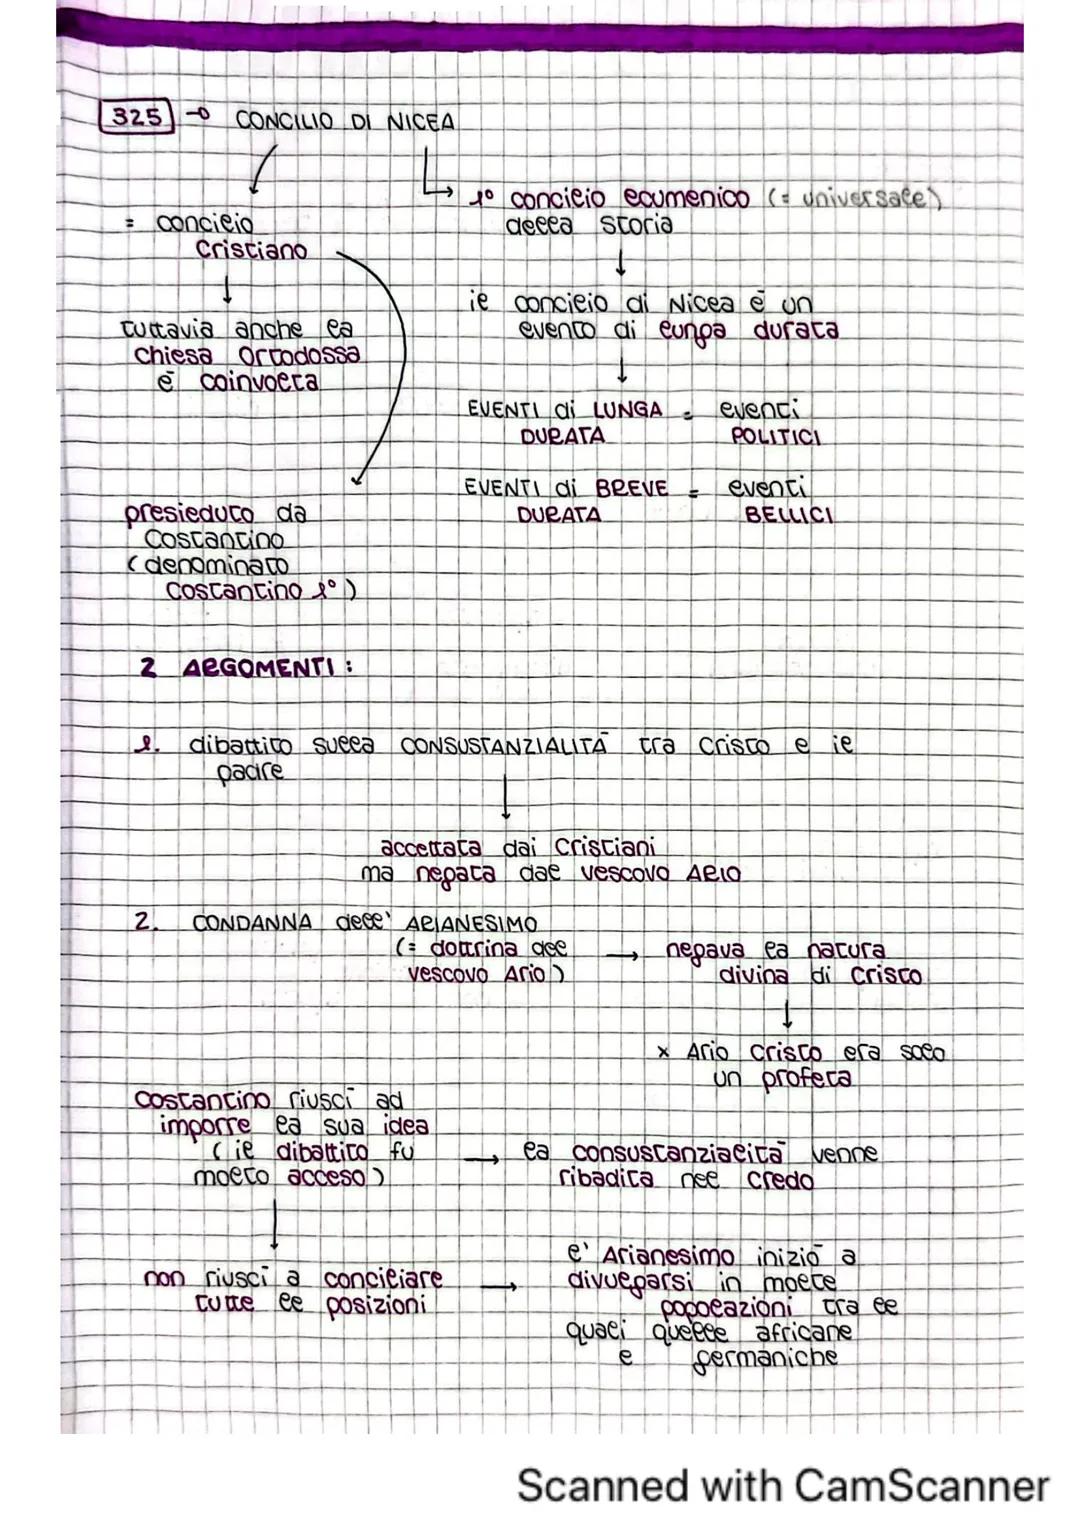 325 → CONCILIO DI NICEA
1° concilio ecumenico (= universale)
della storia
= concilio
Cristiano
tuttavia anche la
Chiesa Ortodossa
è coinvolta
il concilio di Nicea è un
evento di lunga durata
EVENTI di LUNGA = eventi
DURATA POLITICI
EVENTI di BREVE = eventi
DURATA BELLICI
presieduto da
Costantino
(denominato
Costantino 1°)
2 ARGOMENTI:
1. dibattito sulla CONSUSTANZIALITÀ tra Cristo e il
padre
accettata dai Cristiani
ma negata dal vescovo ARIO
2. CONDANNA dell' ARIANESIMO
(= dottrina del → negava la natura
vescovo Ario) divina di Cristo
x Ario Cristo era solo
un profeta
Costantino riuscì ad
imporre la sua idea
(il dibattito fu → la consustanzialità venne
molto acceso) ribadita nel Credo
l' Arianesimo iniziò a
non riuscì a conciliare → divulgarsi in molte
tutte le posizioni popolazioni tra le
quali quelle africane
e germaniche
Scanned with CamScanner